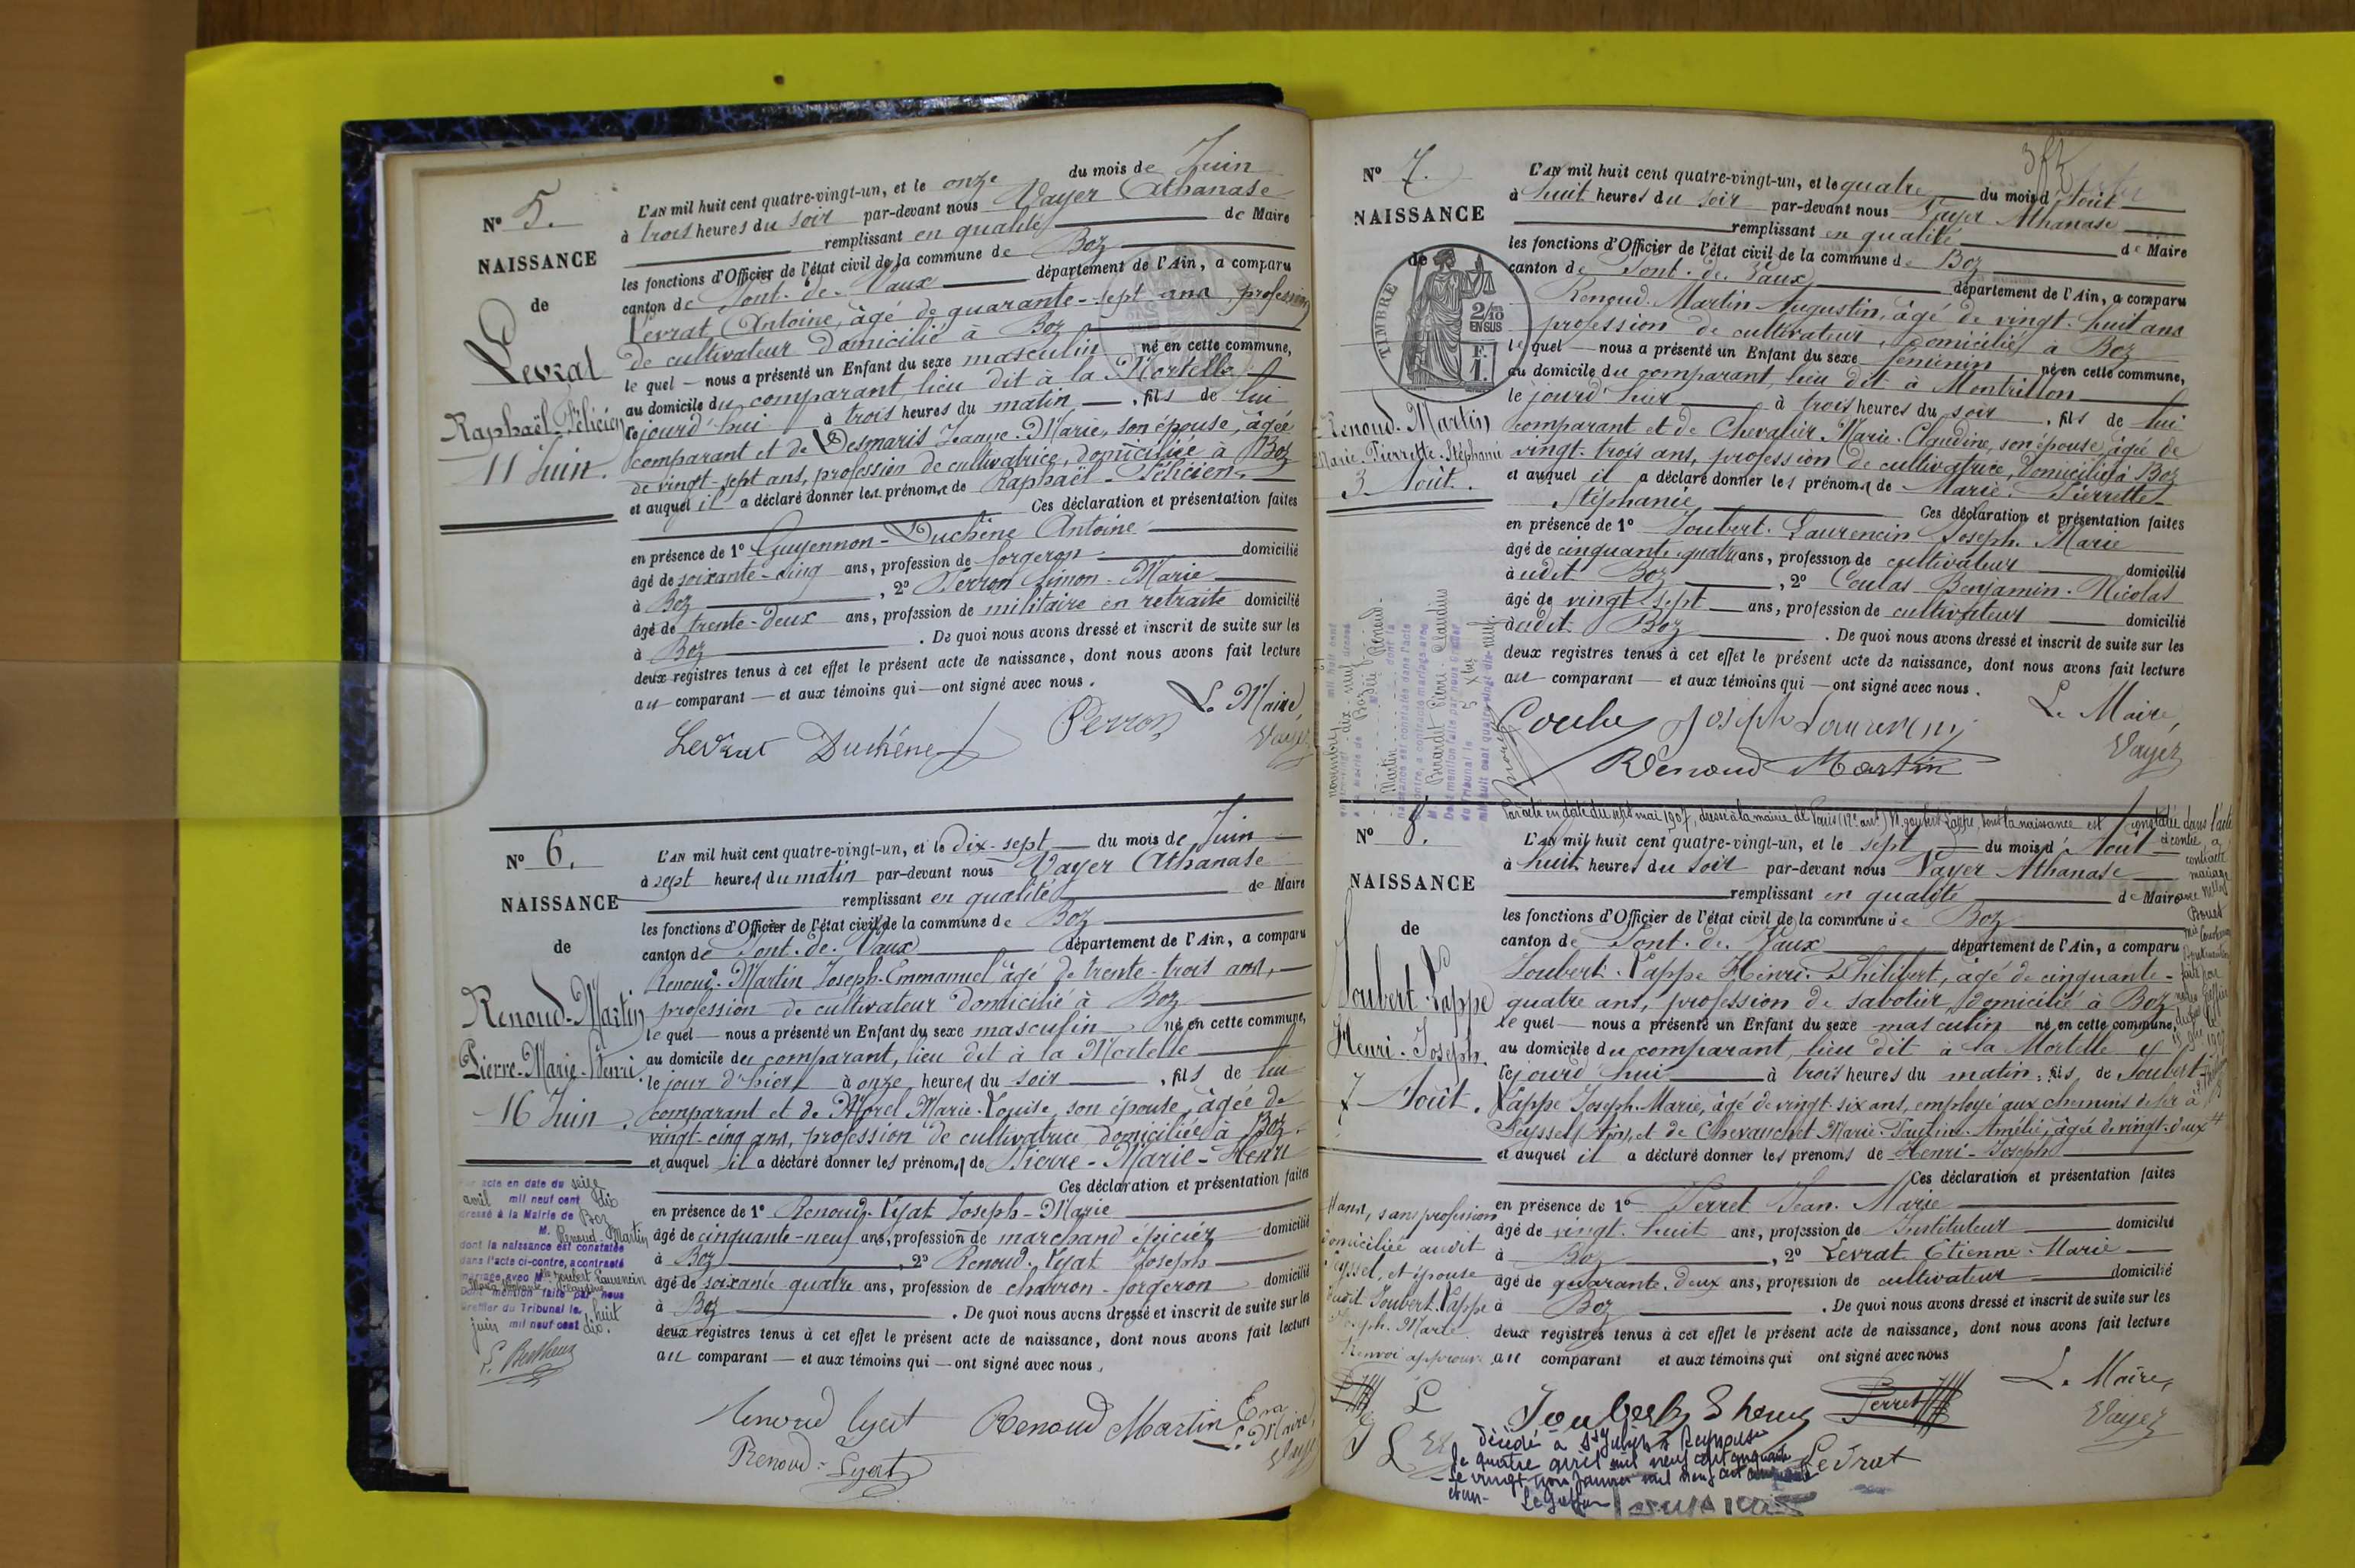 N° 5.
NAISSANCE
de
Levrat
Raphaël-Félicien
11 Juin.
L'AN mil huit cent quatre-vingt-un, et le onze du mois de Juin
à trois heures du soir par-devant nous Vayer Athanase
remplissant en qualité de Maire
les fonctions d'Officier de l'état civil de la commune de Boz
canton de Pont-de-Vaux département de l'Ain, a comparu
Levrat Antoine, âgé de quarante-sept ans, profession
de cultivateur domicilié à Boz
le quel nous a présenté un Enfant du sexe masculin né en cette commune,
au domicile du comparant, lieu dit à la Mortelle
cejourd'hui à trois heures du matin, fils de lui
comparant et de Desmaris Jeanne-Marie, son épouse, âgée
de vingt-sept ans, profession de cultivatrice, domiciliée à Boz
et auquel il a déclaré donner les prénoms de Raphaël-Félicien.
Ces déclaration et présentation faites
en présence de 1° Guyennon-Duchêne Antoine
âgé de soixante-cinq ans, profession de forgeron domicilié
à Boz, 2° Perron Simon-Marie
âgé de trente-deux ans, profession de militaire en retraite domicilié
à Boz. De quoi nous avons dressé et inscrit de suite sur les
deux registres tenus à cet effet le présent acte de naissance, dont nous avons fait lecture
au comparant et aux témoins qui ont signé avec nous.
Le Maire,
Levrat Duchêne Perron Vayer
N° 6.
NAISSANCE
de
Renoud-Martin
Pierre-Marie-Henri
16 Juin.
L'AN mil huit cent quatre-vingt-un, et le dix-sept du mois de Juin
à sept heures du matin par-devant nous Vayer Athanase
remplissant en qualité de Maire
les fonctions d'Officier de l'état civil de la commune de Boz
canton de Pont-de-Vaux département de l'Ain, a comparu
Renoud-Martin Joseph-Emmanuel âgé de trente-trois ans,
profession de cultivateur domicilié à Boz
le quel nous a présenté un Enfant du sexe masculin né en cette commune,
au domicile du comparant, lieu dit à la Mortelle
le jour d'hier à onze heures du soir, fils de lui
comparant et de Morel Marie-Louise, son épouse, âgée de
vingt-cinq ans, profession de cultivatrice domiciliée à Boz.
et auquel il a déclaré donner les prénoms de Pierre-Marie-Henri
Ces déclaration et présentation faites
en présence de 1° Renoud-Lyat Joseph-Marie
âgé de cinquante-neuf ans, profession de marchand épicier domicilié
à Boz, 2° Renoud-Lyat Joseph
âgé de soixante quatre ans, profession de charron-forgeron domicilié
à Boz. De quoi nous avons dressé et inscrit de suite sur les
deux registres tenus à cet effet le présent acte de naissance, dont nous avons fait lecture
au comparant et aux témoins qui ont signé avec nous.
Par acte en date du seize
avril mil neuf cent dix
dressé à la Mairie de Boz
M. Renoud-Martin
dont la naissance est constatée
dans l'acte ci-contre, a contracté
mariage avec Mlle Joubert Laurencin
Dont mention faite par nous
Greffier du Tribunal le huit
juin mil neuf cent dix.
Renoud Lyat Renoud Martin
Le Maire,
Renoud-Lyat Vayer
N° 7.
NAISSANCE
de
TIMBRE
2/10
EN SUS
F.
1.
Renoud-Martin
Marie-Pierrette-Stéphanie
3 Août.
L'AN mil huit cent quatre-vingt-un, et le quatre du mois d'Août
à huit heures du soir par-devant nous Vayer Athanase
remplissant en qualité de Maire
les fonctions d'Officier de l'état civil de la commune de Boz
canton de Pont-de-Vaux département de l'Ain, a comparu
Renoud-Martin Augustin, âgé de vingt-huit ans
profession de cultivateur, domicilié à Boz
le quel nous a présenté un Enfant du sexe féminin né en cette commune,
au domicile du comparant, lieu dit à Montrillon
le jour d'hier à trois heures du soir, fils de lui
comparant et de Chevalier Marie-Claudine, son épouse, âgé de
vingt-trois ans, profession de cultivatrice, domiciliée à Boz
et auquel il a déclaré donner les prénoms de Marie-Pierrette-
Stéphanie Ces déclaration et présentation faites
en présence de 1° Joubert-Laurencin Joseph-Marie
âgé de cinquante-quatre ans, profession de cultivateur domicilié
audit Boz, 2° Coulas Benjamin-Nicolas
âgé de vingt-sept ans, profession de cultivateur domicilié
audit Boz. De quoi nous avons dressé et inscrit de suite sur les
deux registres tenus à cet effet le présent acte de naissance, dont nous avons fait lecture
au comparant et aux témoins qui ont signé avec nous.
Le Maire,
Joseph Laurencin Vayer
Renoud Martin
Par acte en date du sept mai 1907, dressé à la mairie de Paris (12e arrt) M. Joubert Lappe, dont la naissance est constatée dans l'acte
ci contre, a
contracté
mariage
avec Nelly
N° 8.
NAISSANCE
de
Joubert-Lappe
Henri-Joseph.
7 Août.
L'AN mil huit cent quatre-vingt-un, et le sept du mois d'Août
à huit heures du soir par-devant nous Vayer Athanase
remplissant en qualité de Maire
les fonctions d'Officier de l'état civil de la commune de Boz
canton de Pont-de-Vaux département de l'Ain, a comparu
Joubert-Lappe Henri-Philibert, âgé de cinquante-
quatre ans, profession de sabotier, domicilié à Boz
le quel nous a présenté un Enfant du sexe masculin né en cette commune,
au domicile du comparant, lieu dit à la Mortelle
cejourd'hui à trois heures du matin, fils de Joubert-
Lappe Joseph-Marie, âgé de vingt-six ans, employé aux chemins de fer à
Seyssel (Ain), et de Chevauchet Marie-Pauline-Amélie, âgée de vingt-deux #
et auquel il a déclaré donner les prénoms de Henri-Joseph
Ces déclaration et présentation faites
en présence de 1° Perret Jean-Marie
âgé de vingt-huit ans, profession de Instituteur domicilié
à Boz, 2° Levrat Etienne-Marie
âgé de quarante-deux ans, profession de cultivateur domicilié
à Boz. De quoi nous avons dressé et inscrit de suite sur les
deux registres tenus à cet effet le présent acte de naissance, dont nous avons fait lecture
au comparant et aux témoins qui ont signé avec nous
# ans, sans profession
domiciliée audit
Seyssel, et épouse
dudit Joubert-Lappe
Joseph-Marie.
Renvoi approuvé
Le Maire,
Perret Vayer
Levrat
décédé à St Julien s/ Reyssouze
le quatre avril mil neuf cent cinquante
le vingt trois janvier mil neuf cent cinquante
et un